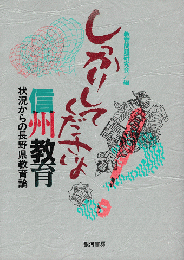 しっかりしてください
信州教育
状況からの長野県教育論
銀河書房